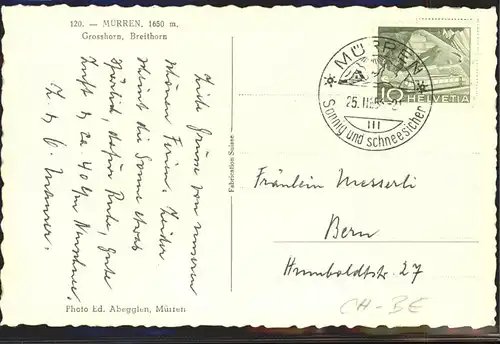 120. — MÜRREN, 1650 m.
Grosshorn, Breithorn
Liebe Grüsse von unseren
schönen Ferien. Leider
scheint die Sonne etwas
spärlich, dafür Ruhe, gute
Luft & ca 40 cm Neuschnee.
Photo Ed. Abegglen, Mürren
Fabrication Suisse
MÜRREN
25. II 55
III
Sonnig und schneesicher
10 HELVETIA
Fräulein Messerli
Bern
Humboldtstr. 27
CH-BE